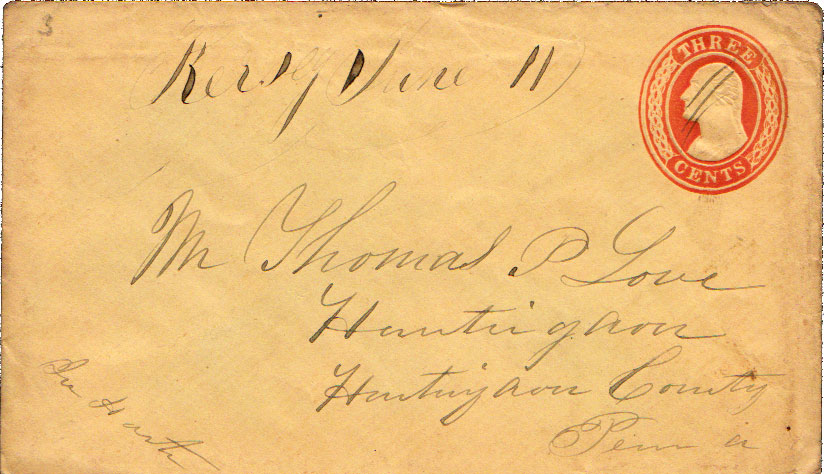 3
Kersey June 11
THREE
CENTS
Mr Thomas P Love
Huntingdon
Huntingdon County
Penn a
In Haste